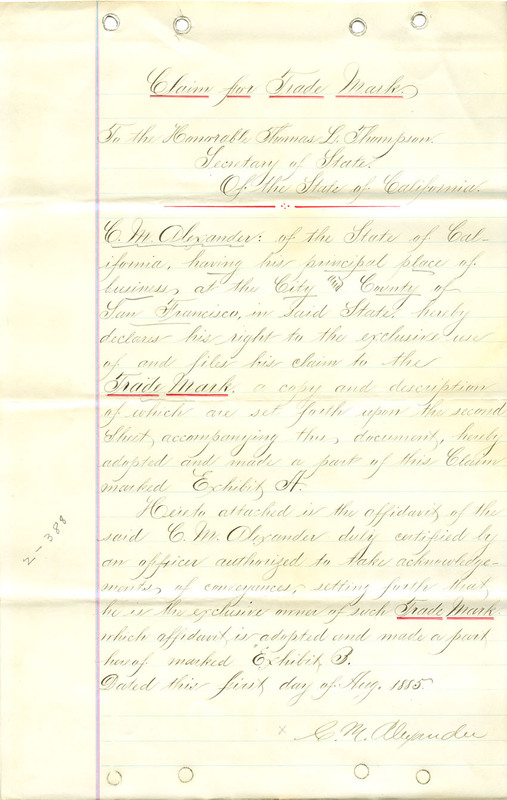 Claim for Trade Mark.
To the Honorable Thomas L. Thompson.
Secretary of State.
Of the State of California.
C. M. Alexander: of the State of Cal-
ifornia, having his principal place of
business, at the City and County of
San Francisco, in said State, hereby
declares his right to the exclusive use
of and files his claim to the
Trade Mark, a copy and description
of which are set forth upon the second
Sheet, accompanying this, document, hereby
adopted and made a part of this Claim
marked Exhibit, A.
Hereto attached is the affidavit of the
said C. M. Alexander duly certified by
an officer authorized to take acknowledge-
ments, of conveyances, setting forth that,
he is the exclusive owner of such Trade Mark
which affidavit, is adopted and made a part
hereof marked "Exhibit, B.
Dated this first day of Aug. 1885.
x C. M. Alexander
2-388